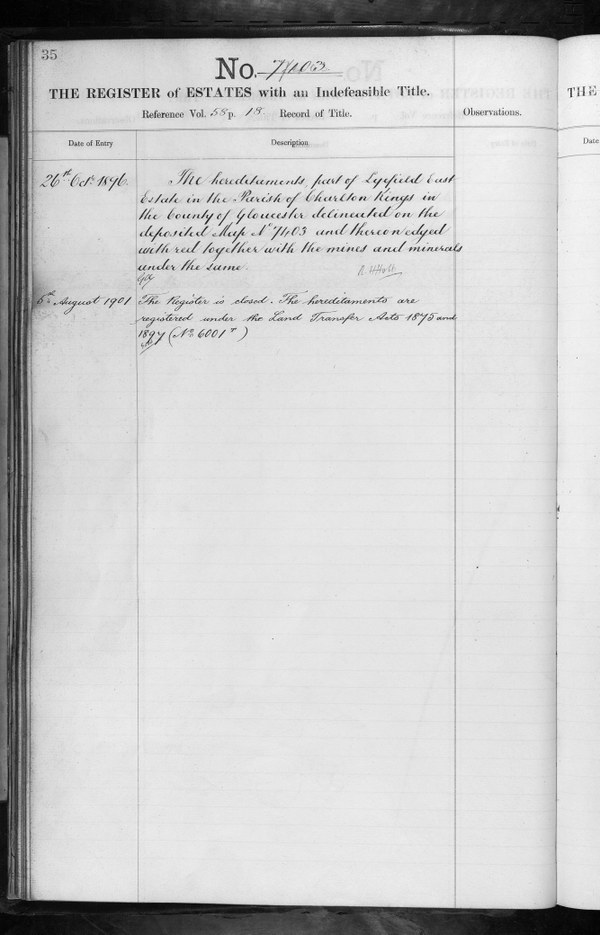 35
No. 7403
THE REGISTER of ESTATES with an Indefeasible Title.
Reference Vol. 58 p. 18 Record of Title.
Observations.
Date of Entry
Description
26th Octr. 1896.
The hereditaments, part of Lyefield East
Estate in the Parish of Charlton Kings in
the County of Gloucester delineated on the
deposited Map No 7403 and thereon edged
with red together with the mines and minerals
under the same.
6th August 1901
The Register is closed. The hereditaments are
registered under the Land Transfer Acts 1875 and
1897 (No. 6001 )
THE
Date